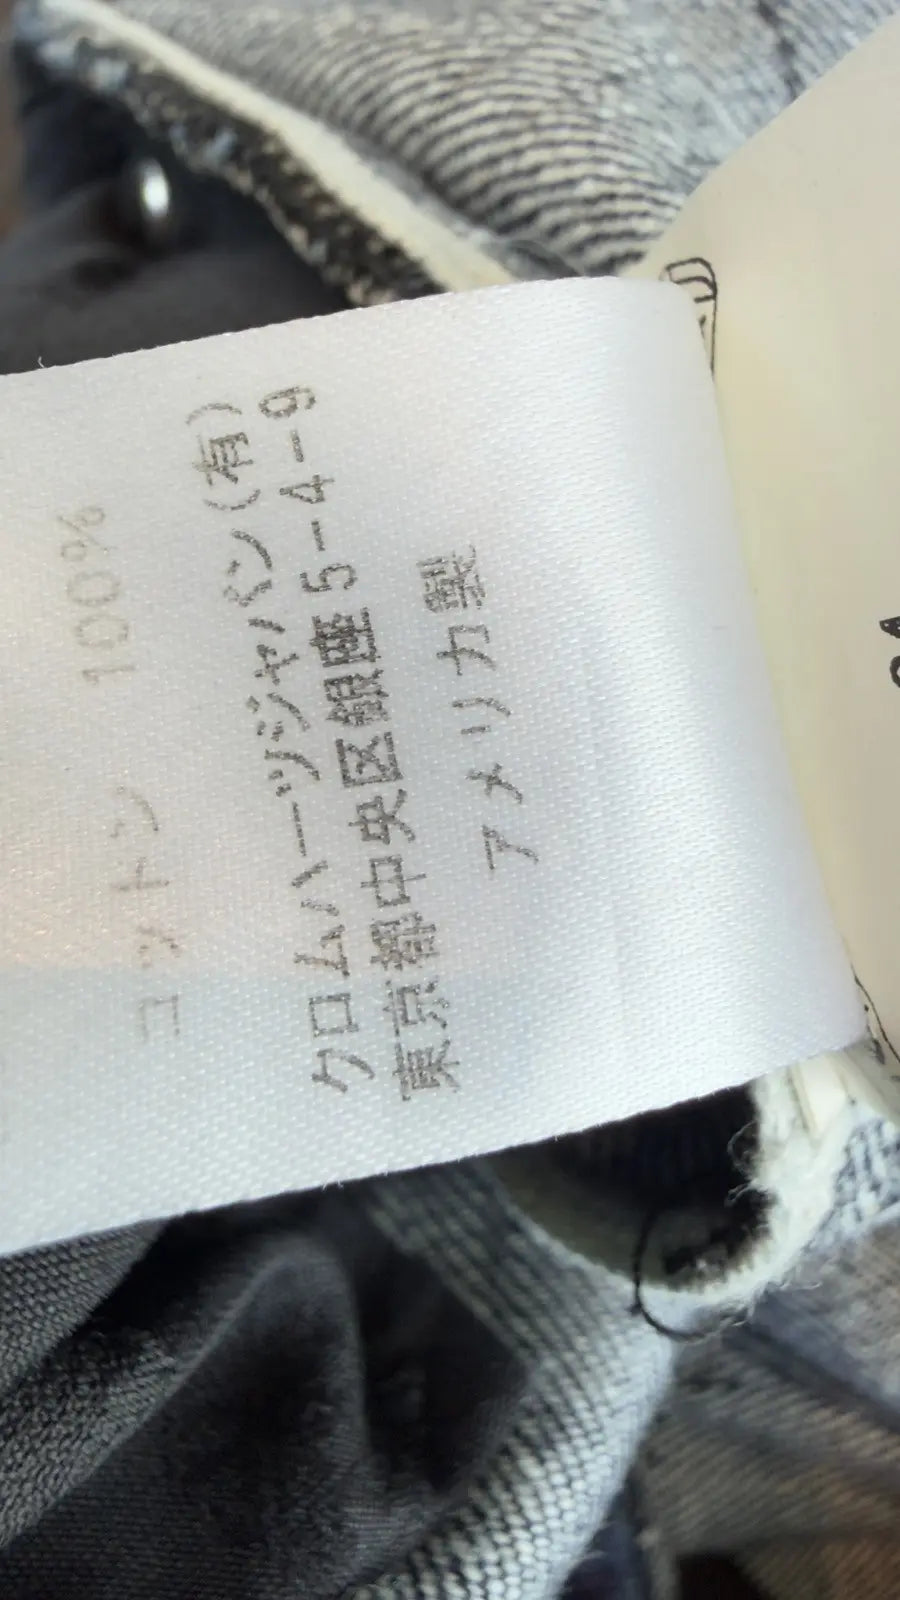 コットン 100%
クロムハーツジャパン(有)
東京都中央区銀座5-4-9
アメリカ製